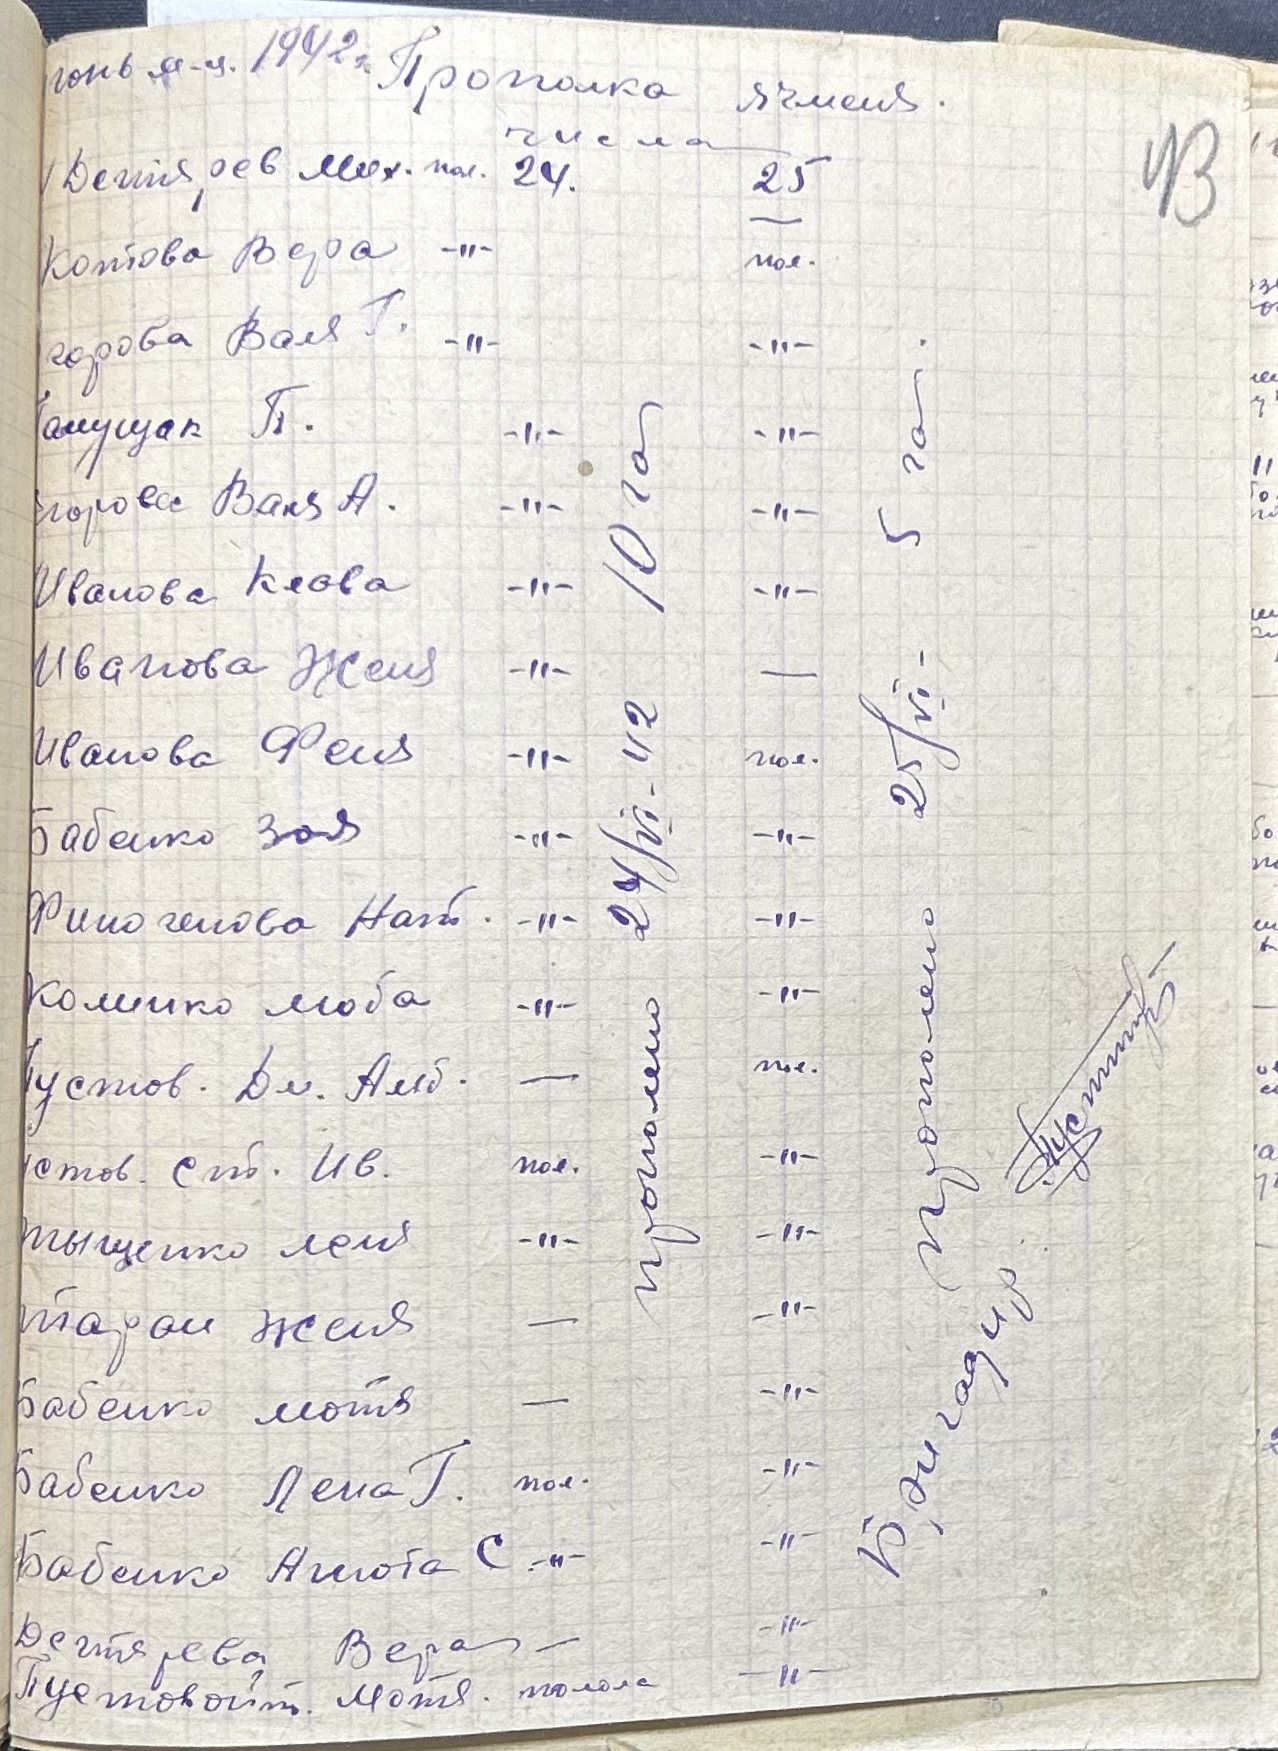 юнь м-ц. 1942г. Прополка ячменя.
числа
43
Дегтярев Мих. пол. 24. 25 —
Котова Вера -"- пол.
горова Валя Г. -"- -"-
Галущак П. -"- -"-
горова Валя А. -"- -"-
Иванова Клава -"- -"-
Иванова Женя -"- —
Иванова Феня -"- пол.
Бабенко Зоя -"- -"-
Финогенова Нат. -"- -"-
Коленко Люба -"- -"-
Пустов. Дм. — пол.
устов. Ст. Ив. пол. -"-
Тыщенко Леня -"- -"-
Таран Женя — -"-
Бабенко Мотя — -"-
Бабенко Лена Г. пол. -"-
Бабенко Анюта С. -"- -"-
Дегтярева Вера — -"-
Пустовойт. Мотя. полола -"-
прополено 24/VI-42 10 га
прополено 25/VI- 5 га.
Бригадир.